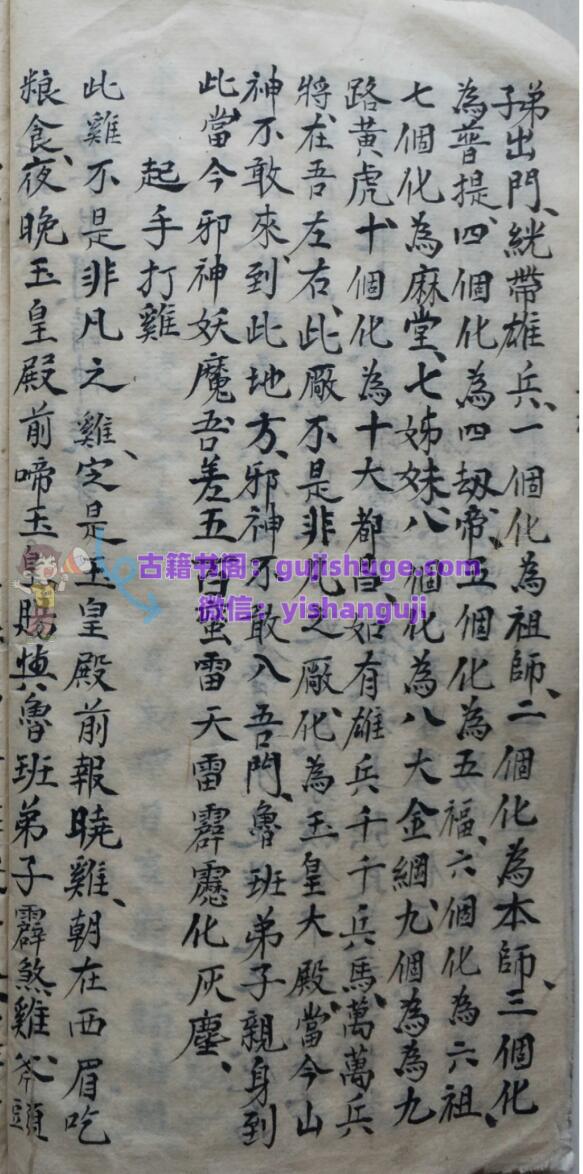 弟子出門、統帶雄兵、一個化為祖師、二個化為本師、三個化
為普提、四個化為四刼帝、五個化為五福、六個化為六祖、
七個化為麻堂、七姊妹、八個化為八大金綱、九個為為九
路黃虎、十個化為十大都昌、如有雄兵千千兵馬、萬萬兵
將、在吾左右、此厰不是非凡之厰、化為玉皇大殿、當今山
神不敢來、到此地方、邪神不敢入吾門、魯班弟子親身到
此、當今邪神妖魔、吾差五百蛮雷天雷霹靂化灰塵、
起手打雞
此雞不是非凡之雞、定是玉皇殿前報曉雞、朝在西眉吃
粮食、夜晚玉皇殿前啼、玉皇賜與魯班弟子霹煞雞、斧頭
古籍书阁：gujishuge.com
微信：yishanguji